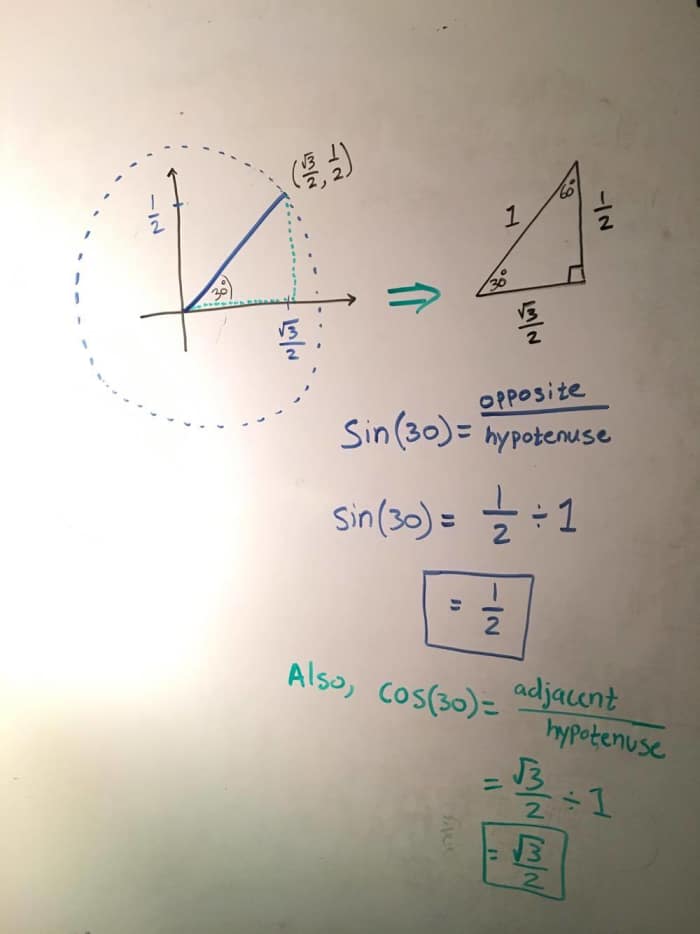 (√3/2, 1/2)
1/2
30°
√3/2
⇒
60°
1
1/2
30°
√3/2
Sin(30) = opposite/hypotenuse
Sin(30) = 1/2 ÷ 1
= 1/2
Also, cos(30) = adjacent/hypotenuse
= √3/2 ÷ 1
= √3/2